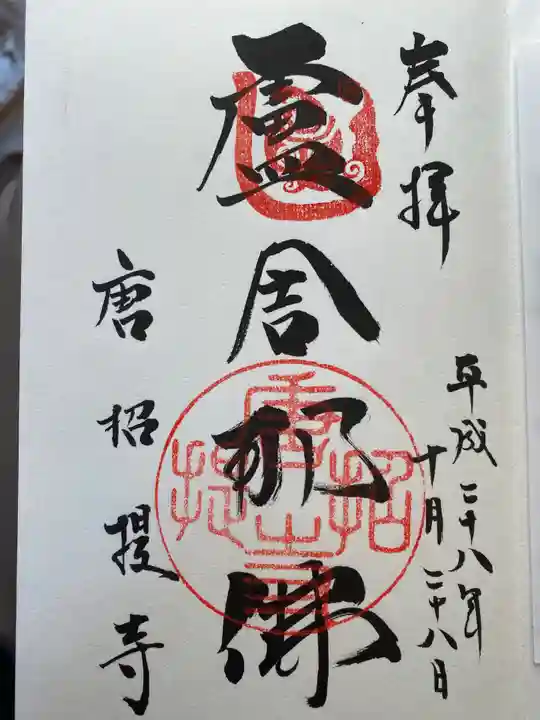 奉拝
平成二十八年
十月二十八日
盧舎那佛
唐招提寺
唐招提寺